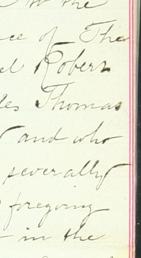 the
ce of The
el Robert
les Thomas
and who
severally
foregoing
in the